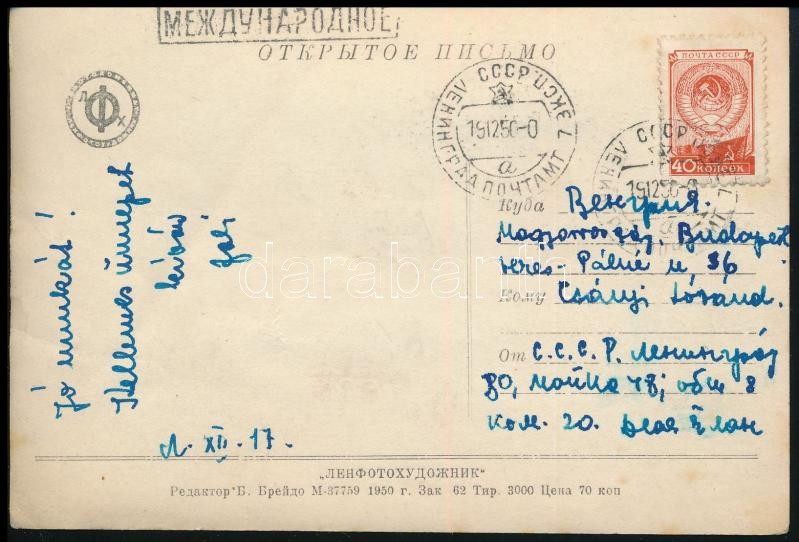 МЕЖДУНАРОДНОЕ
ОТКРЫТОЕ ПИСЬМО
Л Ф Х
ПОЧТА СССР
40 КОПЕЕК
СССР ЦСКЭ 7
191250-0
а
ЛЕНИНГРАД ПОЧТАМТ
СССР
191250-0
Jó munkát!
Kellemes ünnepet
kíván
Л. XII. 17.
Куда Венгрия.
Magyarország, Budapest
Pálné u, 36
Кому Csányi Lóránd.
От С.С.С.Р. Ленинград
80, Мойка 48; общ 8
ком. 20.
„ЛЕНФОТОХУДОЖНИК"
Редактор Б. Брейдо М-37759 1950 г. Зак 62 Тир. 3000 Цена 70 коп
darabanth